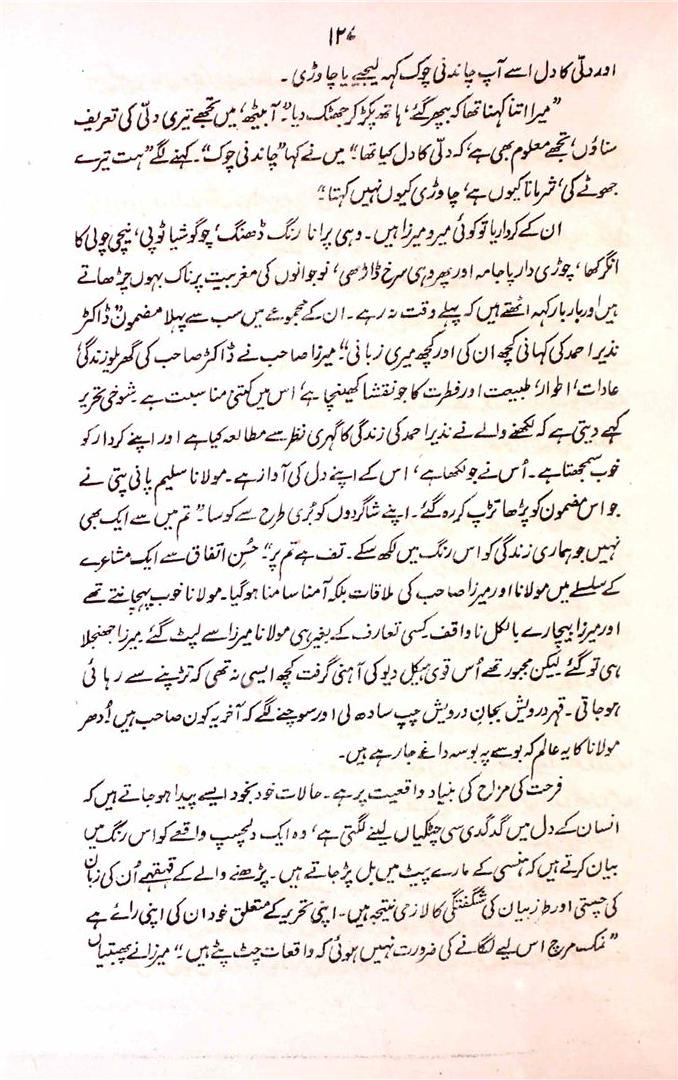 ۱۲۶
اور دلّی کا دل اسے آپ چاندنی چوک کہہ لیجیے یا چاوڑی۔
”میرا اتنا کہنا تھا کہ بپھر گئے، ہاتھ پکڑ کر جھٹک دیا“۔ آ بیٹھ، میں تجھے تیری دلّی کی تعریف
سناؤں، تجھے معلوم بھی ہے، کہ دلّی کا دل کیا تھا“ میں نے کہا ”چاندنی چوک“۔ کہنے لگے ”ہت تیرے
جھوٹے کی، شرماتا کیوں ہے، چاوڑی کیوں نہیں کہتا“۔
ان کے کردار یا تو کوئی میر و میرزا ہیں۔ وہی پرانا رنگ ڈھنگ، چوگوشیا ٹوپی، نیچی چولی کا
انگرکھا، چوڑی دار پاجامہ اور پھر وہی سرخ ڈاڑھی، نوجوانوں کی مغربیت پر ناک بہوں چڑھاتے
ہیں اور بار بار کہہ اٹھتے ہیں کہ پہلے وقت نہ رہے۔ ان کے مجموعے میں سب سے پہلا مضمون ”ڈاکٹر
نذیر احمد کی کہانی کچھ ان کی اور کچھ میری زبانی“۔ میرزا صاحب نے ڈاکٹر صاحب کی گھریلو زندگی،
عادات، اطوار، طبیعت اور فطرت کا جو نقشا کھینچا ہے، اس میں کتنی مناسبت ہے۔ شوخی تحریر
کہے دیتی ہے کہ لکھنے والے نے نذیر احمد کی زندگی کا گہری نظر سے مطالعہ کیا ہے اور اپنے کردار کو
خوب سمجھتا ہے۔ اُس نے جو لکھا ہے، اس کے اپنے دل کی آواز ہے۔ مولانا سلیم پانی پتی نے
جو اس مضمون کو پڑھا تڑپ کر رہ گئے۔ اپنے شاگردوں کو بُری طرح سے کوسا۔ ”تم میں سے ایک بھی
نہیں جو ہماری زندگی کو اس رنگ میں لکھ سکے۔ تف ہے تم پر“ حُسنِ اتفاق سے ایک مشاعرے
کے سلسلے میں مولانا اور میرزا صاحب کی ملاقات بلکہ آمنا سامنا ہوگیا۔ مولانا خوب پہچانتے تھے
اور میرزا بیچارے بالکل ناواقف کسی تعارف کے بغیر ہی مولانا میرزا سے لپٹ گئے۔ میرزا جھنجلا
ہی تو گئے لیکن مجبور تھے اُس قوی ہیکل دیو کی آہنی گرفت کچھ ایسی نہ تھی کہ تڑپنے سے رہائی
ہوجاتی۔ قہرِ درویش بجانِ درویش چپ سادھ لی اور سوچنے لگے کہ آخر یہ کون صاحب ہیں اُدھر
مولانا کا یہ عالم کہ بوسے پہ بوسہ داغے جا رہے ہیں۔
فرحت کی مزاح کی بنیاد واقعیت پر ہے۔ حالات خود بخود ایسے پیدا ہوجاتے ہیں کہ
انسان کے دل میں گدگدی سی چٹکیاں لینے لگتی ہے، وہ ایک دلچسپ واقعے کو اس رنگ میں
بیان کرتے ہیں کہ ہنسی کے مارے پیٹ میں بل پڑ جاتے ہیں۔ پڑھنے والے کے قہقہے اُن کی زبان
کی چستی اور طرزِ بیان کی شگفتگی کا لازمی نتیجہ ہیں۔ اپنی تحریر کے متعلق خود ان کی اپنی رائے ہے
”نمک مرچ اس لیے لگانے کی ضرورت نہیں ہوئی کہ واقعات چٹ پٹے ہیں۔“ میرزا نے پھبتیاں